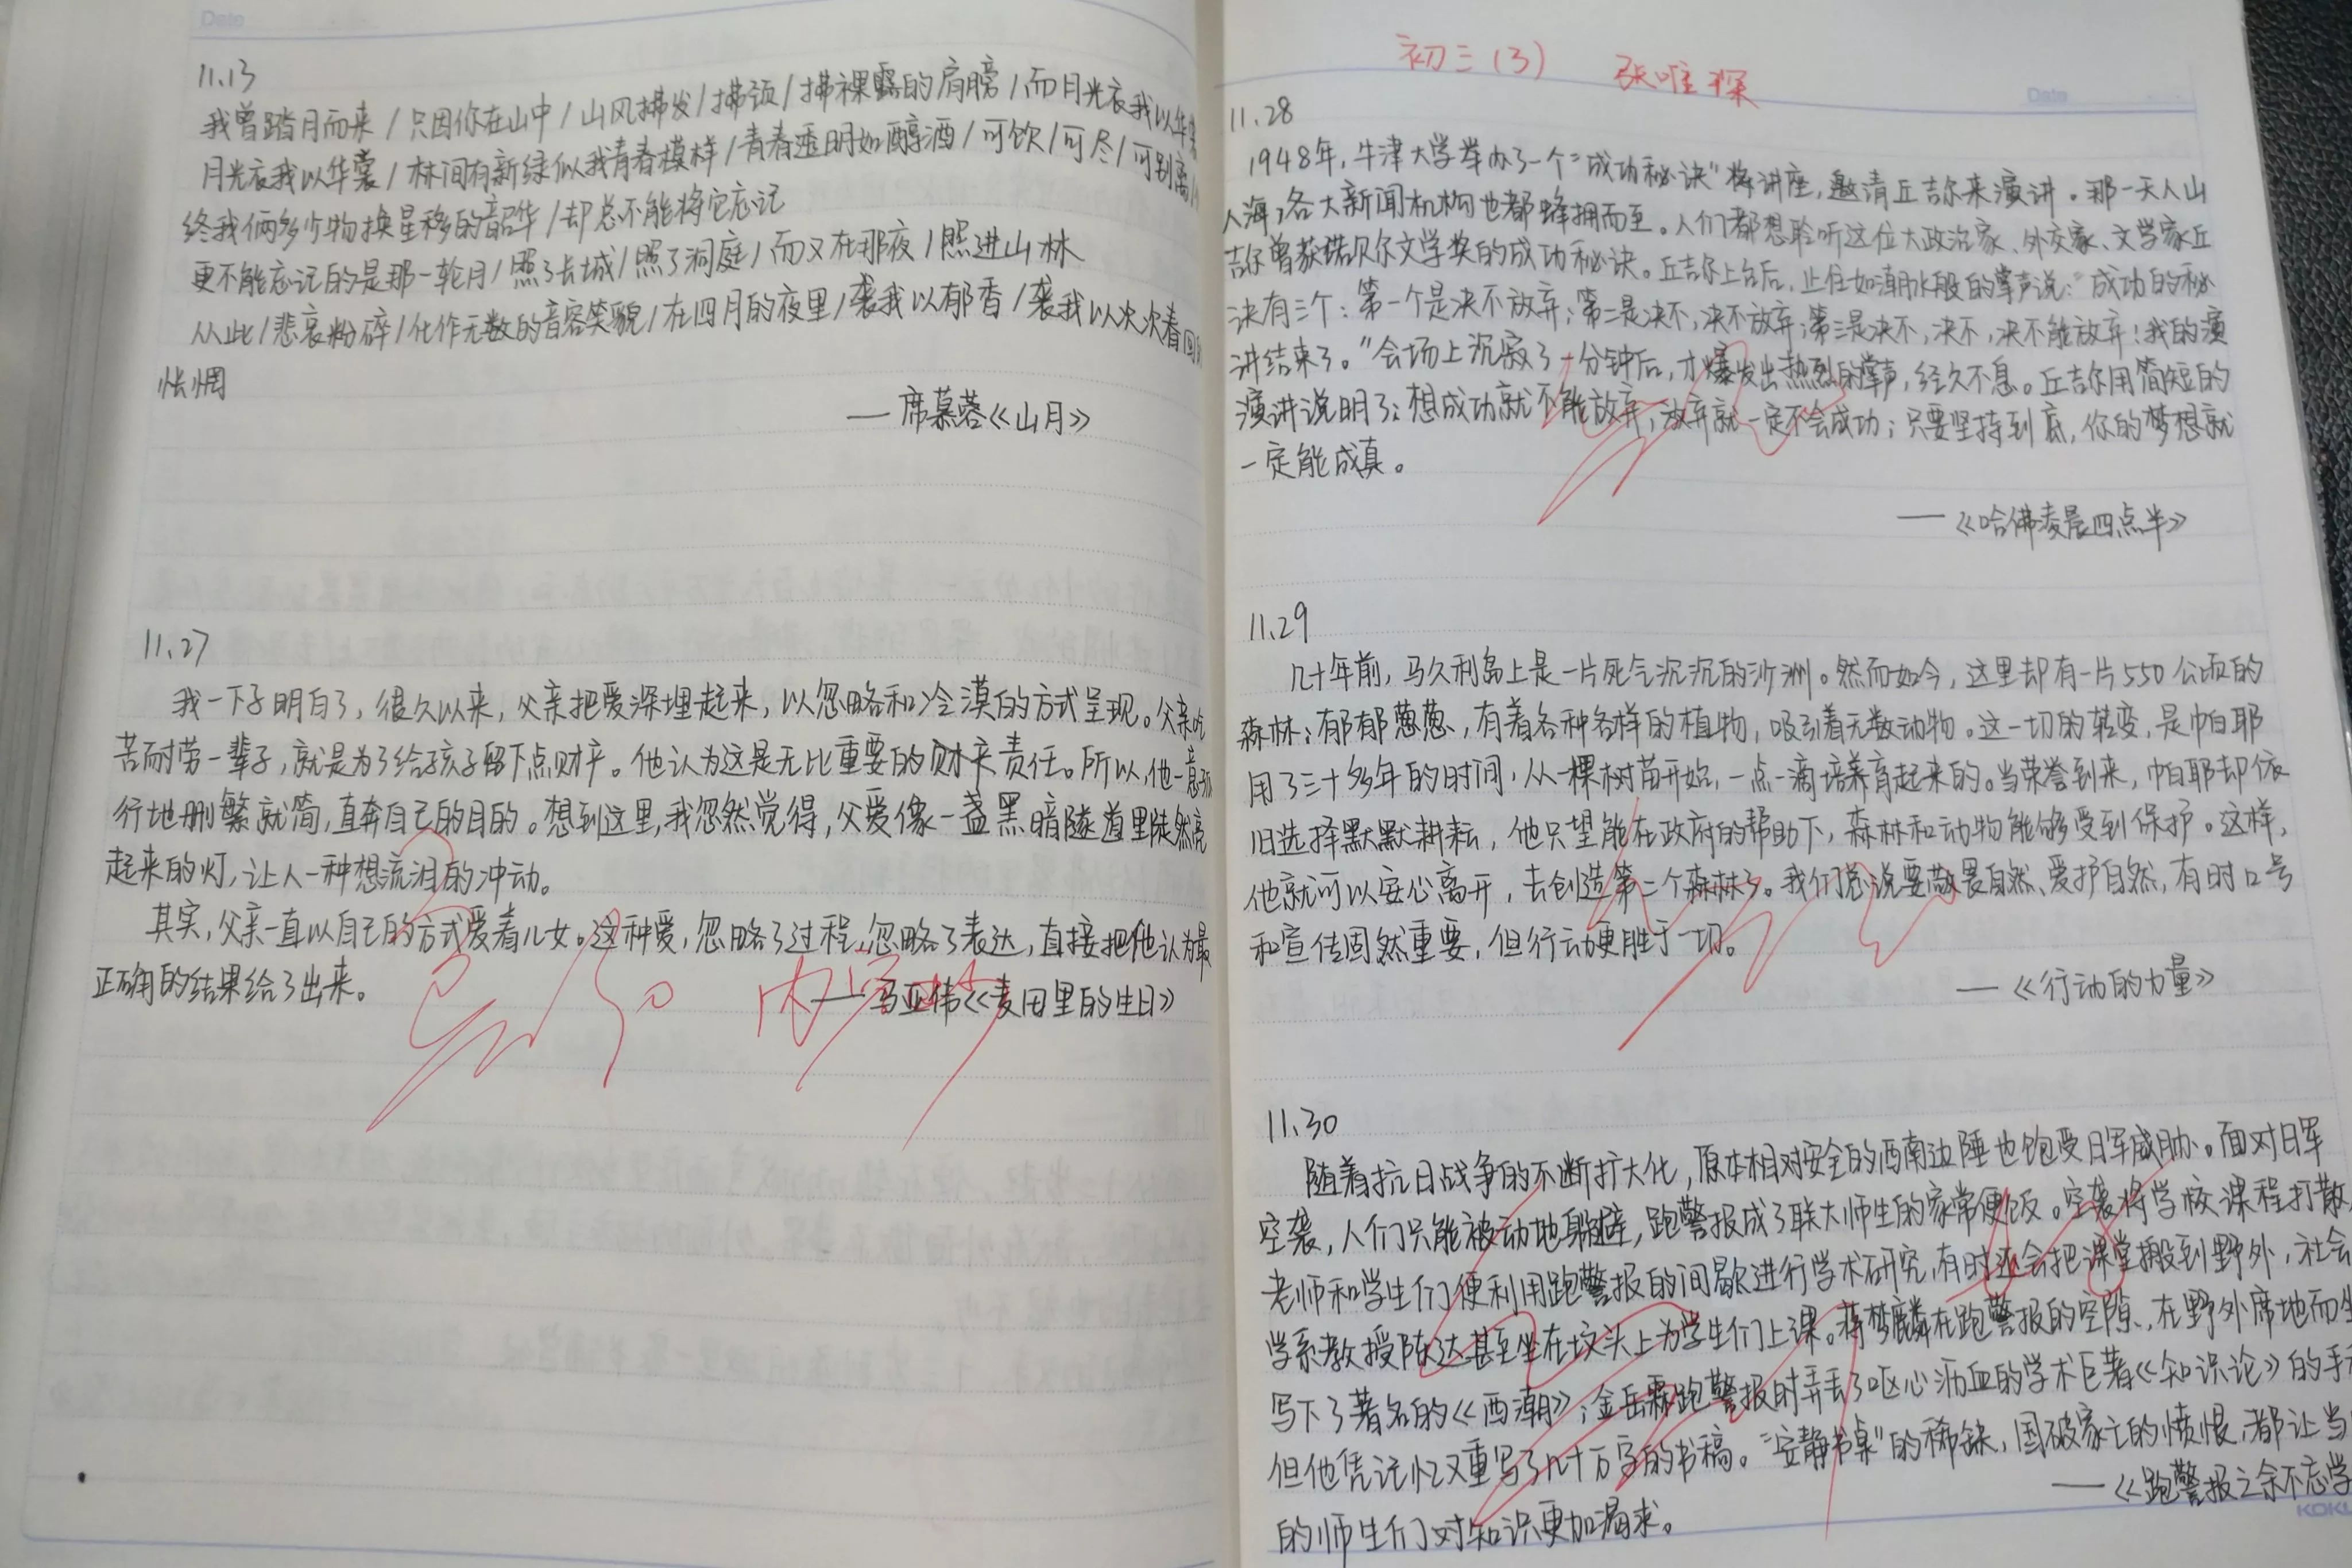 Date
11.13
我曾踏月而来/只因你在山中/山风拂发/拂颈/拂裸露的肩膀/而月光衣我以华裳
月光衣我以华裳/林间有新绿似我青春模样/青春透明如醇酒/可饮/可尽/可别离/
终我俩多少物换星移的韶华/却总不能将它忘记
更不能忘记的是那一轮月/照了长城/照了洞庭/而又在那夜/照进山林
从此/悲哀粉碎/化作无数的音容笑貌/在四月的夜里/袭我以郁香/袭我以次次春回的
怅惘
——席慕蓉《山月》
11.27
我一下子明白了,很久以来,父亲把爱深埋起来,以忽略和冷漠的方式呈现。父亲吃
苦而耐劳一辈子,就是为了给孩子留下点财产。他认为这是无比重要的财产责任。所以,他一意孤
行地删繁就简,直奔自己的目的。想到这里,我忽然觉得,父爱像一盏黑暗隧道里陡然亮
起来的灯,让人一种想流泪的冲动。
其实,父亲一直以自己的方式爱着儿女。这种爱,忽略了过程,忽略了表达,直接把他认为最
正确的结果给了出来。
——马亚伟《麦田里的生日》
初三(3) 张唯琛
Date
11.28
1948年,牛津大学举办了一个“成功秘诀”讲座,邀请丘吉尔来演讲。那一天人山
人海,各大新闻机构也都蜂拥而至。人们都想聆听这位大政治家、外交家、文学家丘
吉尔曾获诺贝尔文学奖的成功秘诀。丘吉尔上台后,止住如潮水般的掌声说:“成功的秘
诀有三个:第一个是决不放弃;第二是决不,决不放弃;第三是决不,决不,决不能放弃!我的演
讲结束了。”会场上沉寂了一分钟后,才爆发出热烈的掌声,经久不息。丘吉尔用简短的
演讲说明了:想成功就不能放弃,放弃就一定不会成功;只要坚持到底,你的梦想就
一定能成真。
——《哈佛凌晨四点半》
11.29
几十年前,马久利岛上是一片死气沉沉的沙洲。然而如今,这里却有一片550公顷的
森林:郁郁葱葱,有着各种各样的植物,吸引着无数动物。这一切的转变,是帕耶
用了三十多年的时间,从一棵树苗开始,一点一滴培养育起来的。当荣誉到来,帕耶却依
旧选择默默耕耘,他只望能在政府的帮助下,森林和动物能够受到保护。这样,
他就可以安心离开,去创造第二个森林了。我们总说要敬畏自然、爱护自然,有时口号
和宣传固然重要,但行动更胜于一切。
——《行动的力量》
11.30
随着抗日战争的不断扩大化,原本相对安全的西南边陲也饱受日军威胁。面对日军
空袭,人们只能被动地躲避,跑警报成了联大师生的家常便饭。空袭将学校课程打散,
老师和学生们便利用跑警报的间歇进行学术研究,有时还会把课堂搬到野外,社会
学系教授陈达甚至坐在坟头上为学生们上课。蒋梦麟在跑警报的空隙,在野外席地而坐
写下了著名的《西潮》;金岳霖跑警报时弄丢了呕心沥血的学术巨著《知识论》的手
但他凭记忆又重写了几十万字的书稿。“安静书桌”的稀缺,国破家亡的愤恨,都让当
的师生们对知识更加渴求。
——《跑警报之余不忘学